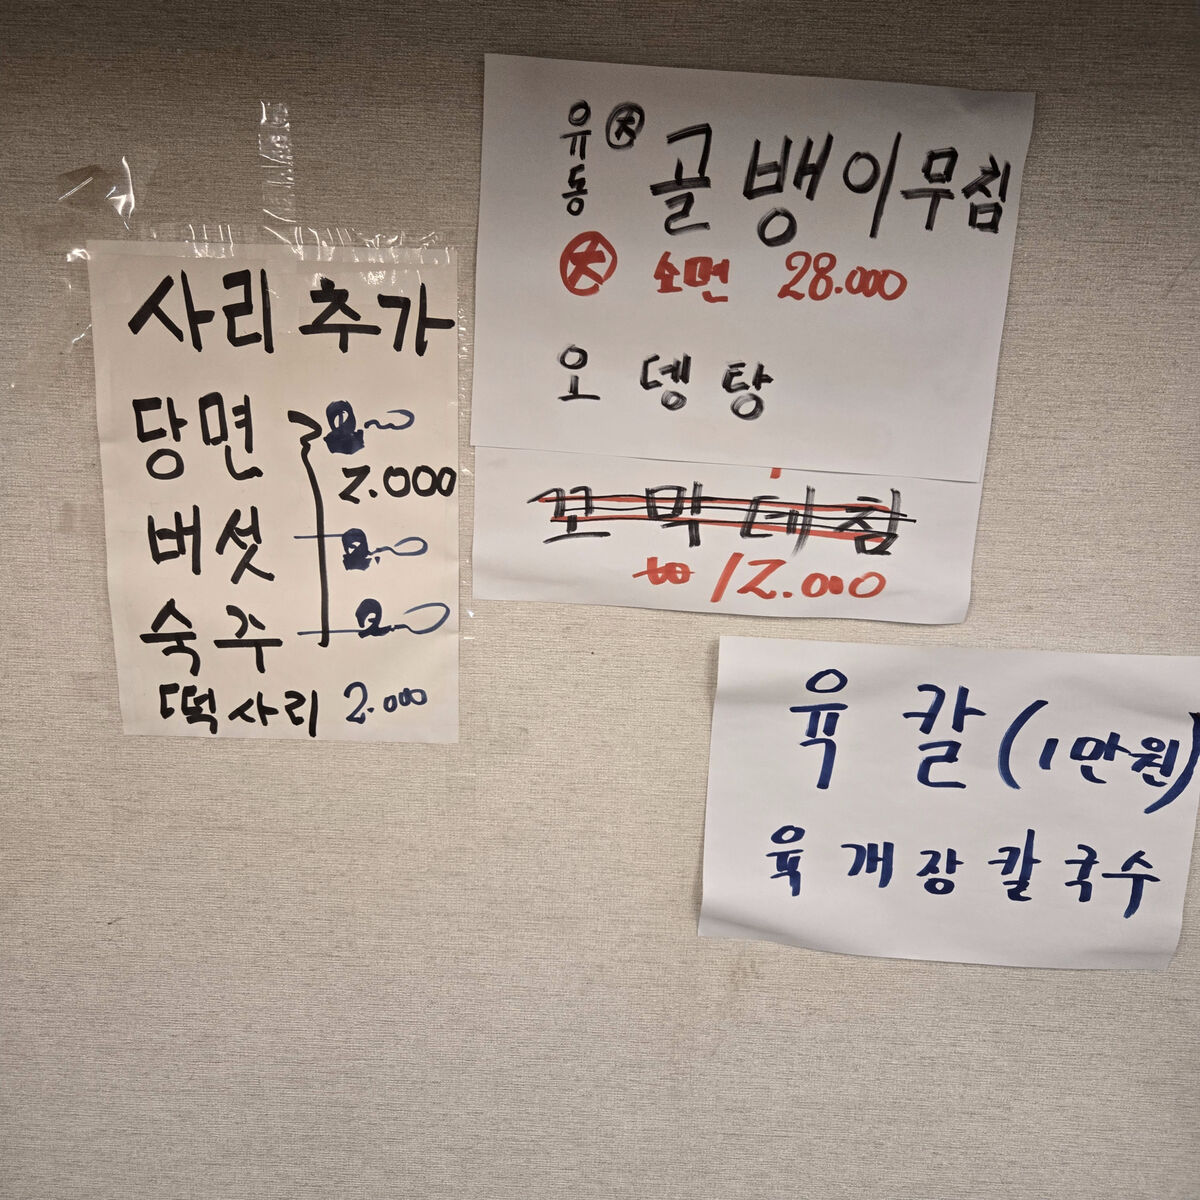 사리 추가
당면
2.000
버섯
숙주
떡사리 2.000
유동 大 골뱅이무침
大 소면 28.000
오뎅탕
꼬막데침
12.000
육칼(1만원)
육개장칼국수